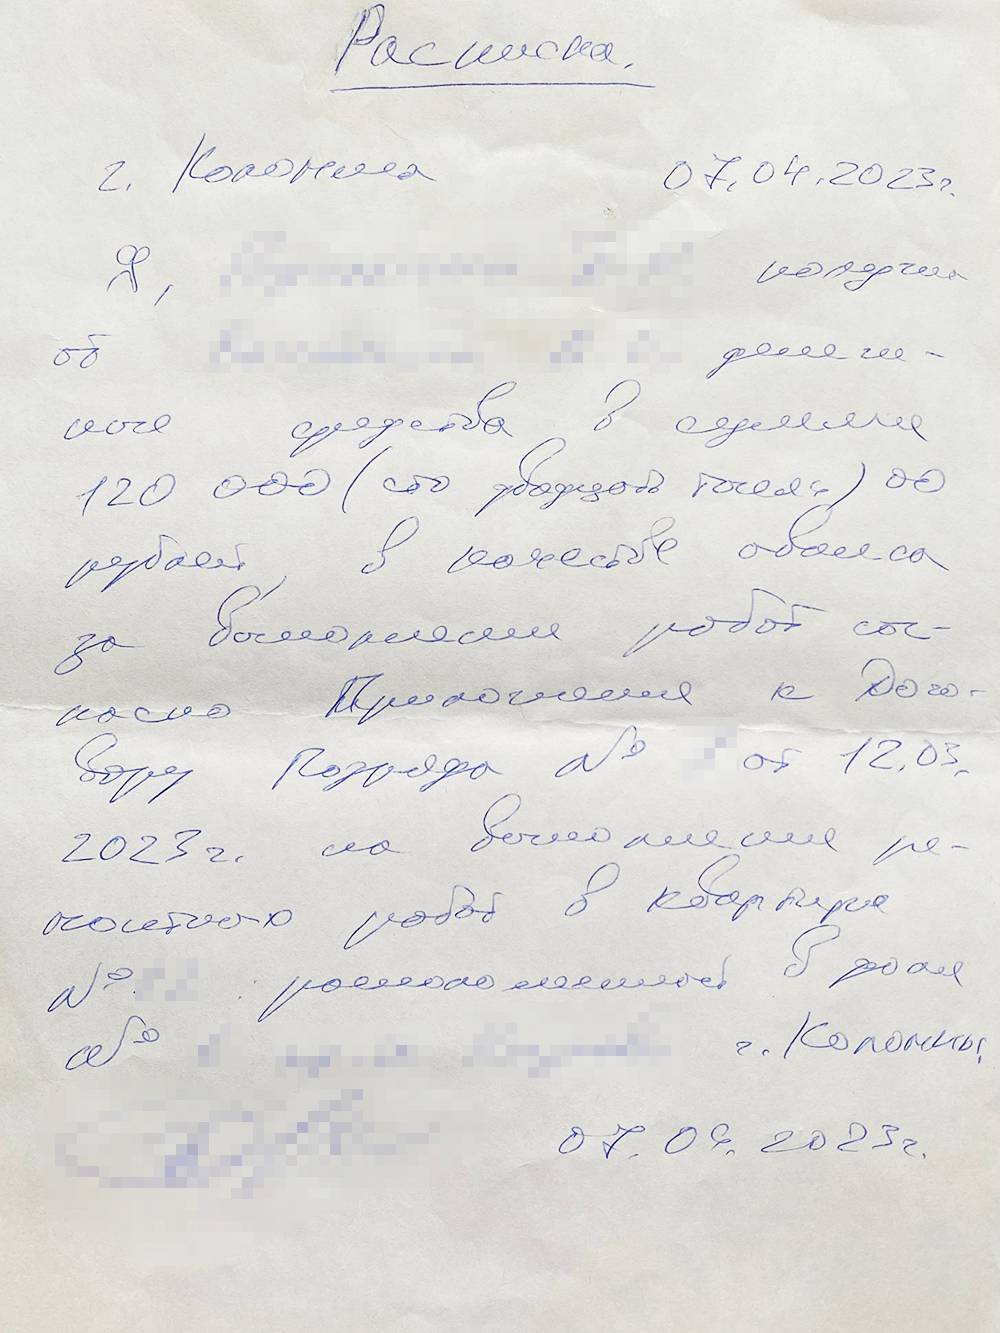 Расписка.
г. Коломна 07.04.2023г.
Я, получил
от денеж-
ные средства в сумме
120 000 (сто двадцать тысяч) 00
рублей, в качестве аванса
за выполнение работ сог-
ласно Приложения к Дого-
вору Подряда № от 12.03.
2023г. на выполнение ре-
монтных работ в квартире
№ расположенной в доме
№ г. Коломны
07.04.2023г.